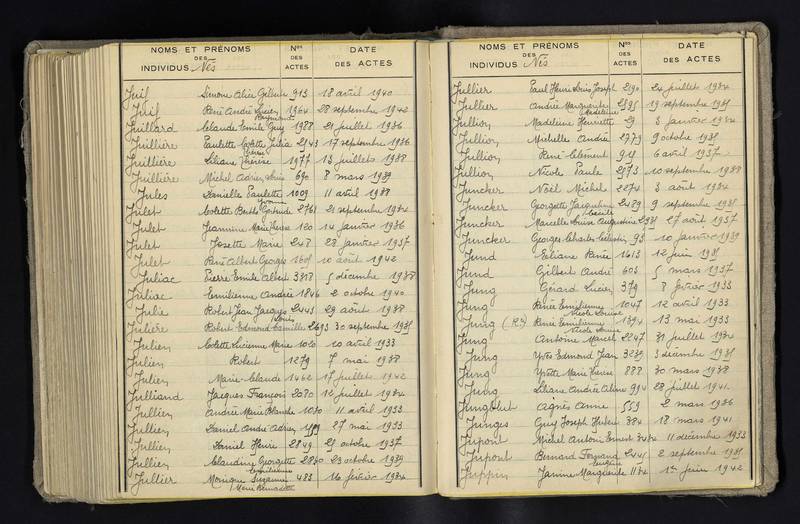 NOMS ET PRÉNOMS
DES
INDIVIDUS Nés
Nos
DES
ACTES
DATE
DES ACTES
Juil Simone Alice Gilberte 913 18 avril 1940
Juil René André Lucien 1964 28 septembre 1942
Raymond
Juillard Claude Emile Guy 1988 21 juillet 1936
Juillière Paulette Colette Julia 2943 17 septembre 1936
Juillière Liliane Thérèse 1977 13 juillet 1938
Juillière Michel Adrien Louis 690 8 mars 1939
Jules Danielle Paulette 1009 11 avril 1938
Yvonne
Julet Colette Berthe Gertrude 2761 21 septembre 1934
Julet Jeannine Marie 120 14 janvier 1936
Julet Josette Marie 248 28 janvier 1937
Julet René Albert Georges 10 août 1942
Juliac Pierre Emile Albert 5 décembre 1938
Juliac Emilienne Andrée 1846 2 octobre 1940
Julie Robert Jean Jacques 2443 29 août 1938
Louis
Julière Robert Edmond Camille 2693 30 septembre
Julien Colette Lucienne Marie 1020 10 avril 1933
Julien Robert 1279 7 mai 1938
Julien Marie Claude 1462 17 juillet 1942
Julliand Jacques François 2080 12 juillet 1934
Jullien Andrée Marie Blanche 1030 11 avril 1933
Jullien Daniel André Adrien 27 mai 1933
Jullien Daniel Henri 2849 25 octobre 1937
Jullien Claudine Georgette 2820 23 octobre 1939
Emilienne
Jullier Monique Suzanne 483 16 février 1934
Marie Bernadette
NOMS ET PRÉNOMS
DES
INDIVIDUS Nés
Nos
DES
ACTES
DATE
DES ACTES
Jullier Paul Henri Louis Joseph 2190 24 juillet 1934
Jullier André Marguerite 19 septembre
Madeleine
Jullion Madeleine Henriette 29 3 janvier 1934
Jullion Michelle Andrée 2779 9 octobre
Jullion René Clément 919 6 avril 1937
Jullion Nicole Paule 2973 10 septembre 1938
Juncker Noël Michel 2274 3 août 1934
Juncker Georgette Jacqueline 2489 9 septembre
Cécile
Juncker Marcelle Louise Augustine 27 août 1937
Juncker Georges Charles Célestin 93 10 janvier 1939
Jund Liliane Renée 1613 12 juin
Jund Gilbert André 603 5 mars 1937
Jung Gérard Lucien 379 8 février 1933
Jung Renée Emilienne 1047 12 avril 1933
Nicole Louise
Jung (Rt) Renée Emilienne 1394 13 mai 1933
Nicole Louise
Jung Antoine Marcel 2247 31 juillet 1934
Jung Yves Edmond Jean 3239 3 décembre
Jung Yvette Marie Thérèse 888 30 mars 1938
Jung Liliane Andrée Aline 994 28 juillet 1941
Jungblut Agnès Anne 553 2 mars 1936
Junges Guy Joseph Hubert 384 18 mars 1941
Jupont Michel Antoine Ernest 3432 11 décembre 1933
Jupont Bernard Fernand 2441 2 septembre
Juppin Janine Marguerite 1134 1er juin 1942